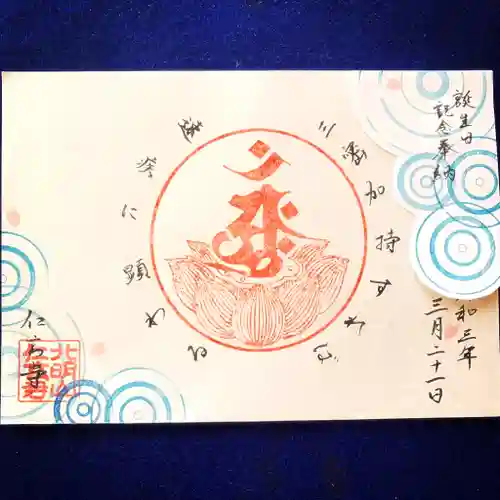 誕生日
記念奉納
三密加持すれば
速疾に顕わる
和三年
三月二十一日
北明山